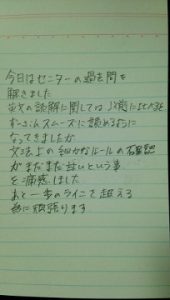 今日はセンターの過去問を
解きました
英文の読解に関しては以前に比べ
ずいぶんスムーズに読めるように
なってきましたが
文法上の細かなルールの確認
がまだまだ甘いという事
を痛感しました
あと一歩のラインで超える
為に頑張ります